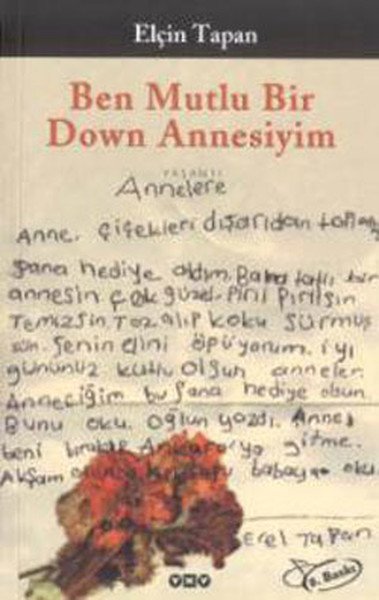 Elçin Tapan
Ben Mutlu Bir
Down Annesiyim
YAŞANTI
Annelere
Anne, çiçekleri dışarıdan
sana hediye aldım. Bana tatlı bir
annesin çok güzel. Pırıl Pırılsın
Temizsin. Toz alıp koku sürmüş
sün. Senin elini öpüyorum. iyi
gününüz kutlu olsun anneler.
Anneciğim bu sana hediye olsun.
Bunu oku. Oğlun yazdı. Anne
beni bırakıp Ankara'ya gitme.
Akşam babaya oku
Erel Tapan
YKY
8. Baskı